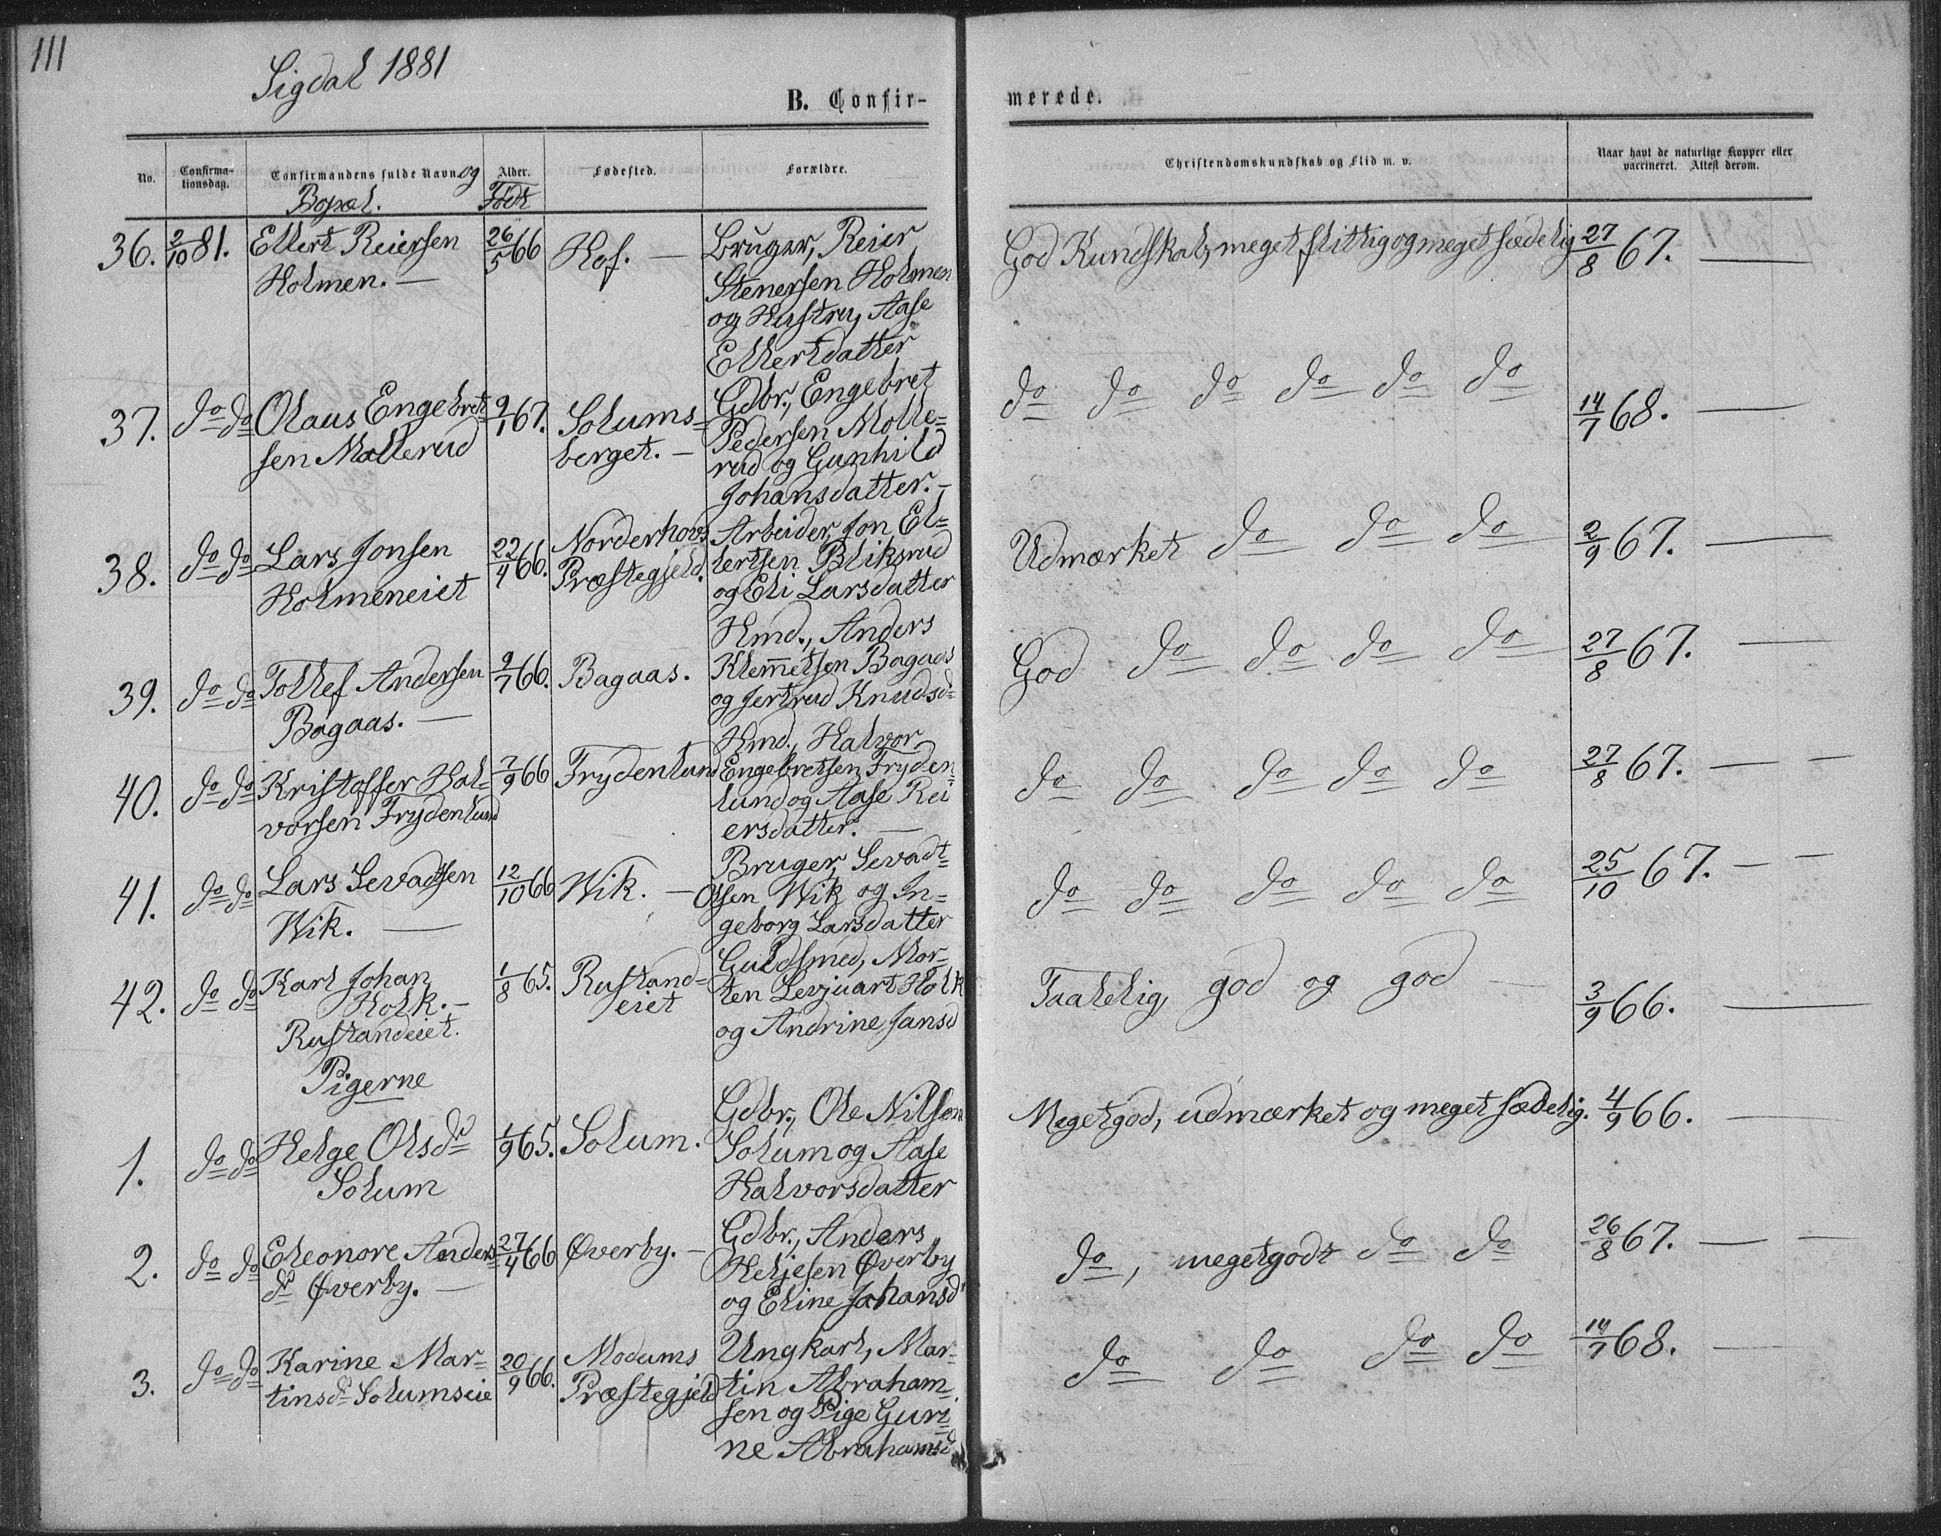 111
Sigdal 1881
B. Confir-
merede.
No.
Confirma-
tionsdag.
Confirmandens fulde Navn og
Bopæl.
Alder.
Født
Fødested.
Forældre.
Christendomskundskab og Flid m. v.
Naar havt de naturlige Kopper eller
vaccineret. Attest derom.
36. 2/10 81. Ellert Reiersen
Holmen. —
26/5 66 Hof. —
Bruger, Reier
Stenersen Holmen
og Hustru, Aase
Ellertdatter
God Kundskab, meget flittig og meget sædelig 27/8 67. —
37. do do Olaus Engebret-
sen Møllerud
9/1 67. Solums-
berget. —
Gdbr., Engebret
Pedersen Mølle-
rud og Gunhild
Johansdatter. —
do do do do do do 14/7 68. —
38. do do Lars Jonsen
Holmeneiet
22/4 66. Norderhovs
Præstegjeld.
Arbeider, Jon El-
lertsen Bliksrud
og Eli Larsdatter
Udmærket do do do 2/9 67. —
39. do do Tollef Andersen
Bagaas. —
9/7 66. Bagaas.
Hmd., Anders
Klemmetsen Bagaas
og Jertrud Knudsd-
God do do do do 27/8 67. —
40. do do Kristoffer Hal-
vorsen Frydenlund
7/9 66 Frydenlund
Hmd., Halvor
Engebretsen Fryden-
lund og Aase Rei
ersdatter. —
do do do do do 27/8 67. — —
41. do do Lars Sevadtsen
Wik. —
12/10 66 Wik. —
Bruger, Sevadt-
Olsen Wik og In-
geborg Larsdatter
do do do do do 25/10 67. — —
42. do do Karl Johan
Holk. —
Rustandeiet.
1/8 65. Rustand-
eiet
Guldsmed, Mor-
ten Levjuart Holk
og Andrine Jansd
Taalelig, god og god — 3/9 66. —
Pigerne
1. do do Helge Olsd
Solum
1/9 65. Solum.
Gdbr., Ole Nilsen
Solum og Aase
Halvorsdatter
Megetgod, udmærket og meget sædelig. 4/9 66. —
2. do do Eleonore Anders-
d Øverby. —
27/4 66 Øverby. —
Gdbr., Anders
Heljesen Øverby
og Eline Johansd
do, megetgodt do do 26/8 67. — —
3. do do Karine Mar-
tinsd Solumseie
20/9 66. Modums
Præstegjeld
Ungkarl, Mar-
tin Abraham
sen og Pige Guri-
ne Abrahamsd
do do do do 14/7 68. —